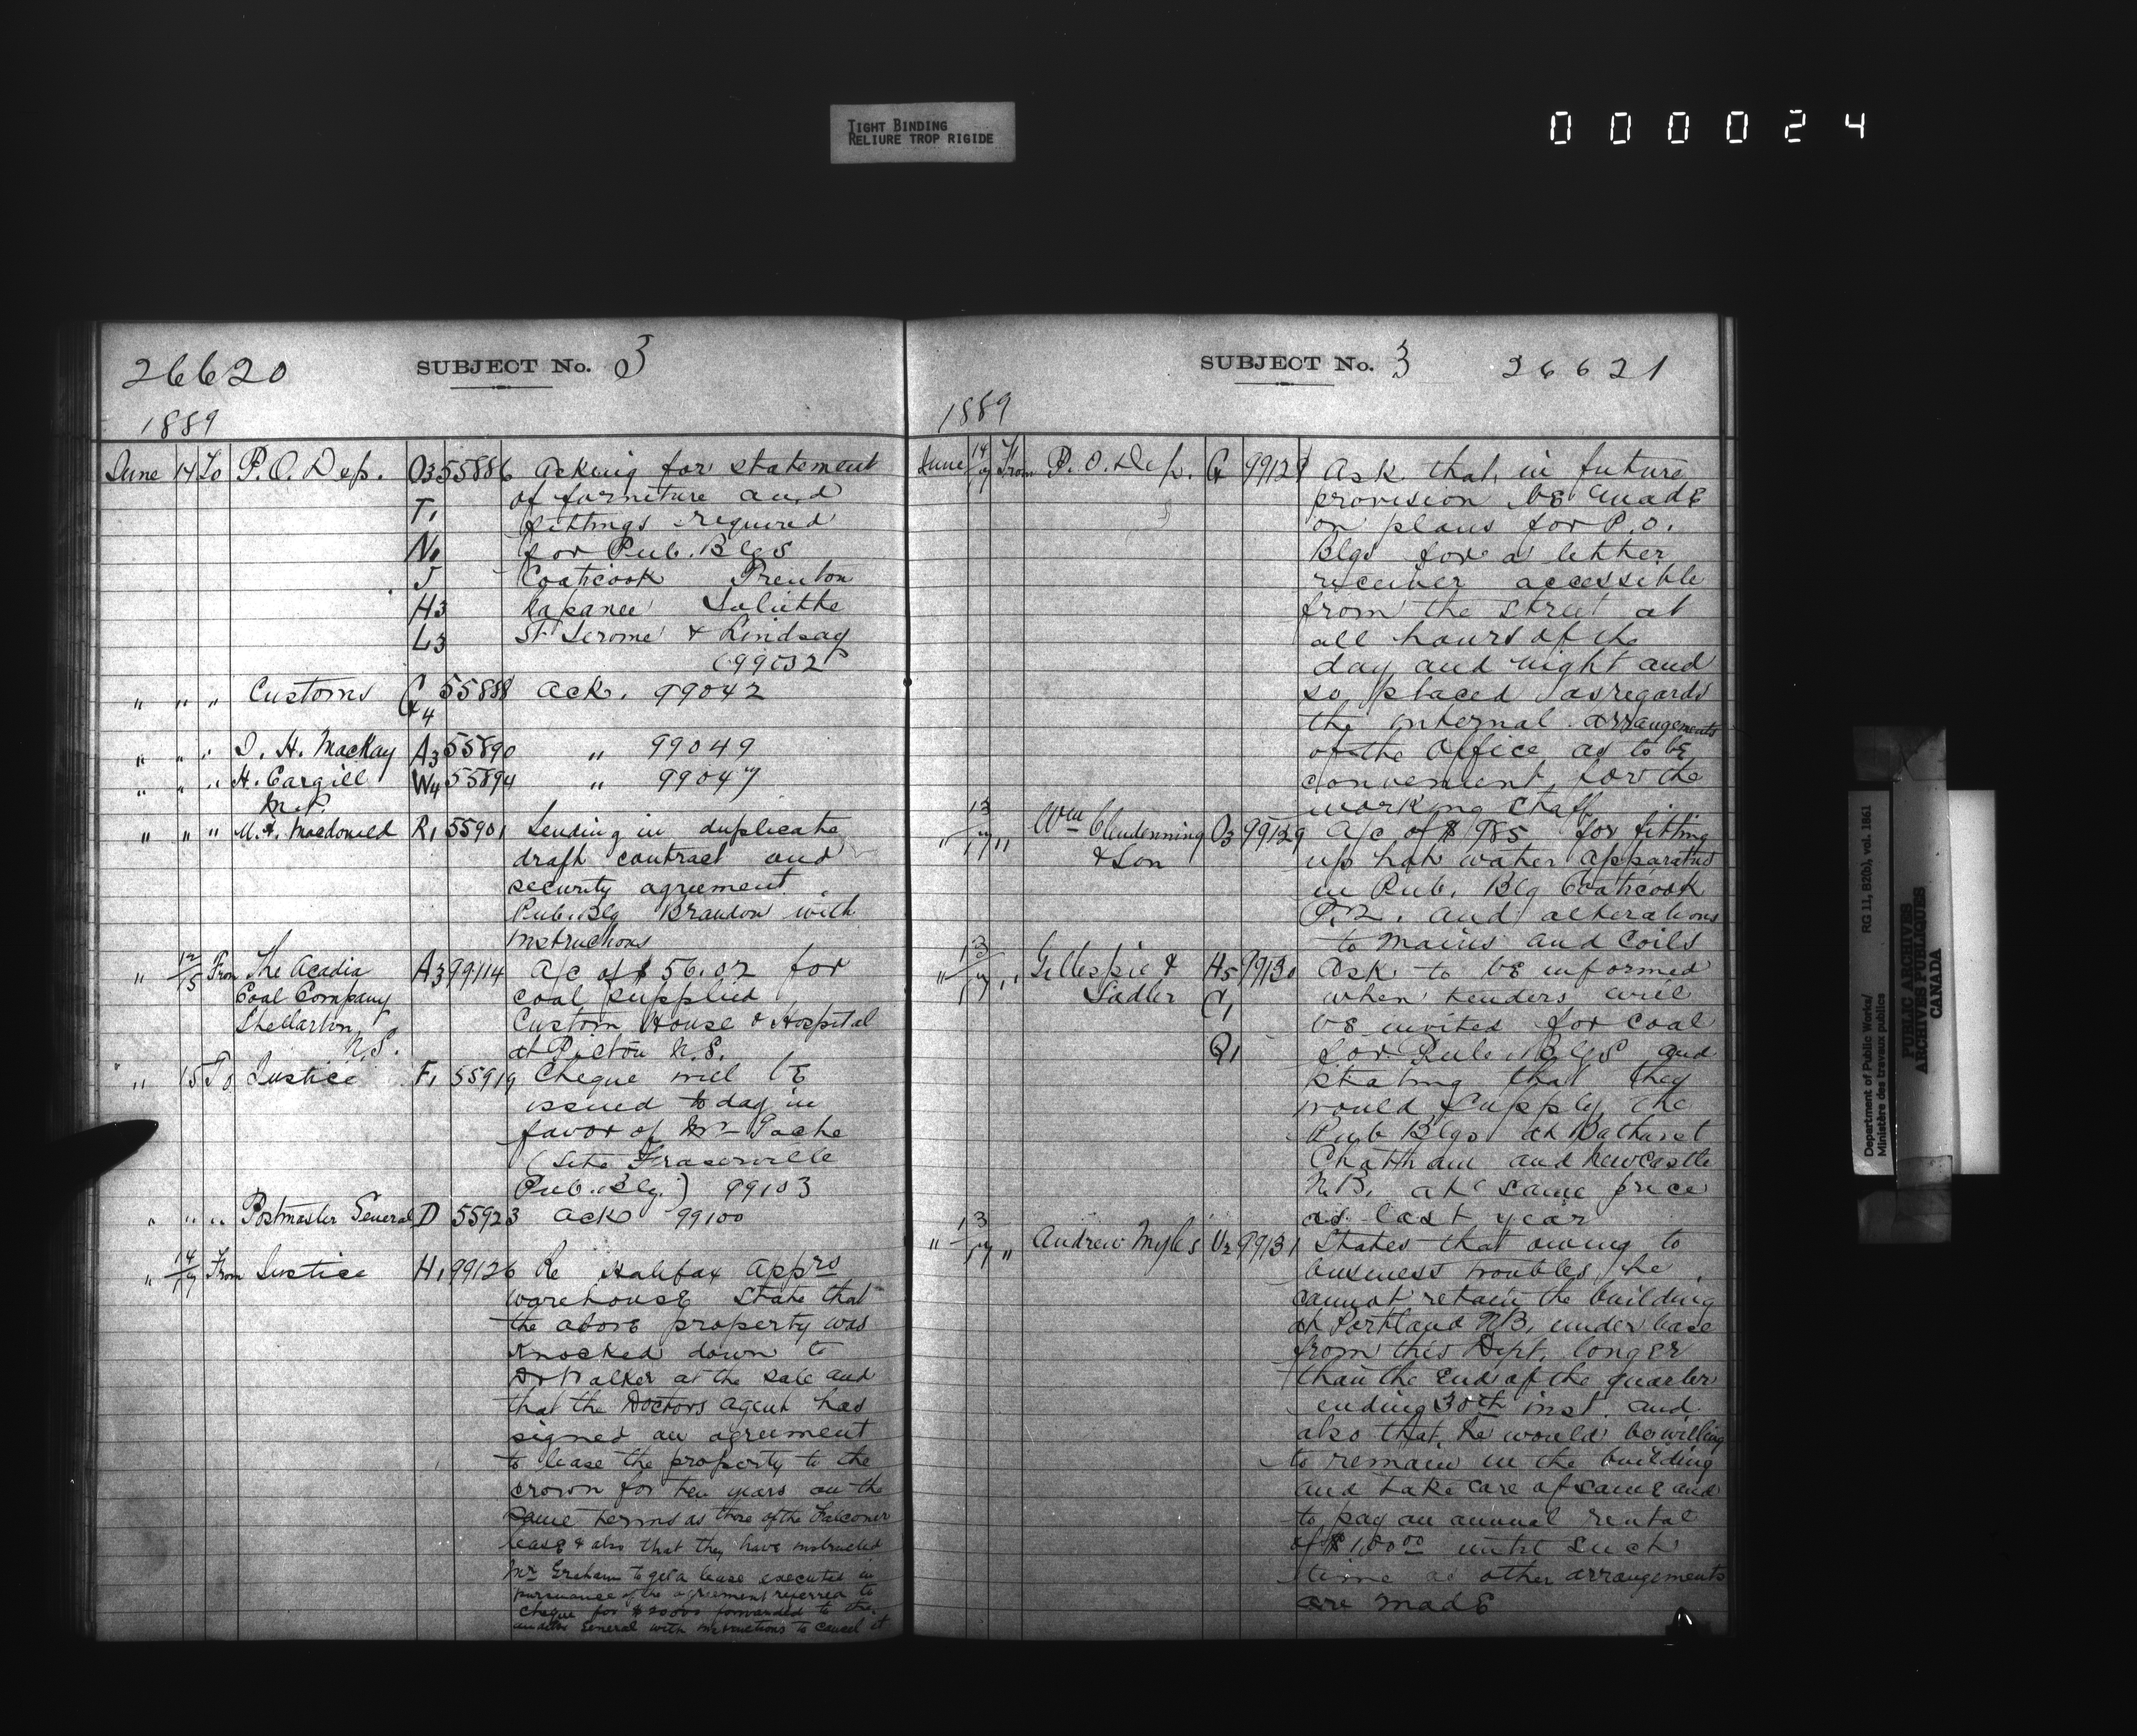 TIGHT BINDING
RELIURE TROP RIGIDE
000024
26620 SUBJECT No. 3
1889
June 14 To P.O. Dep. O3 55886 Asking for statement
T1 of furniture and
fittings required
N1 for Pub. Blgs
J Coaticook Trenton
H3 Napanee Joliette
L3 St Jerome & Lindsay
(99032)
" " " Customs 55888 ack. 99042
4
" " " D. H. MacKay A3 55890 " 99049
" " " H. Cargill W4 55894 " 99047
M.P.
" " " Macdonald R1 55901 Sending in duplicate
draft contract and
security agreement
Pub. Blg Brandon with
instructions
" 12/15 From The Acadia A3 99114 A/c of $56.02 for
Coal Company coal supplied
Stellarton, Custom House & Hospital
N.S. at Pictou N.S.
" 15 To Justice F1 55919 Cheque will be
issued to day in
favor of Mr Pache
(Site Fraserville
Pub. Blg.) 99103
" " " Postmaster General D 55923 ack 99100
" 14/17 From Justice H1 99126 Re Halifax apprs
warehouse State that
the above property was
knocked down to
Dr Walker at the sale and
that the Doctors agent has
signed an agreement
to lease the property to the
crown for ten years on the
same terms as those of the Falconer
lease & also that they have instructed
Mr Graham to get a lease executed in
pursuance of the agreement referred to
cheque for forwarded to the
auditor General with instructions to cancel it
SUBJECT No. 3 26621
1889
June 14/17 From P.O. Dep. 99128 Ask that in future
provision be made
on plans for P.O.
Blgs for a letter
receiver accessible
from the street at
all hours of the
day and night and
so placed as regards
the internal arrangements
of the Office as to be
convenient for the
working staff
" 13/17 " Wm Clendenning O3 99129 A/c of $985 for fitting
& Son up hot water apparatus
in Pub. Blg Coaticook
P.Q. and alterations
to mains and coils
" 13/17 " Gillespie & H5 99130 Ask to be informed
Sadler C1 when tenders will
be invited for coal
Q1 for Pub. Blgs and
stating that they
would supply the
Pub Blgs at Bathurst
Chatham and Newcastle
N.B. at same price
as last year
" 13/17 " Andrew Myles U2 99131 States that owing to
business troubles he
cannot retain the building
at Portland N.B. under lease
from this Dept. longer
than the end of the quarter
ending 30th inst. and
also that he would be willing
to remain in the building
and take care of same and
to pay an annual rental
of $100.00 until such
time as other arrangements
are made
Department of Public Works/ RG 11, B2(b), vol. 1861
Ministère des travaux publics
PUBLIC ARCHIVES
ARCHIVES PUBLIQUES
CANADA